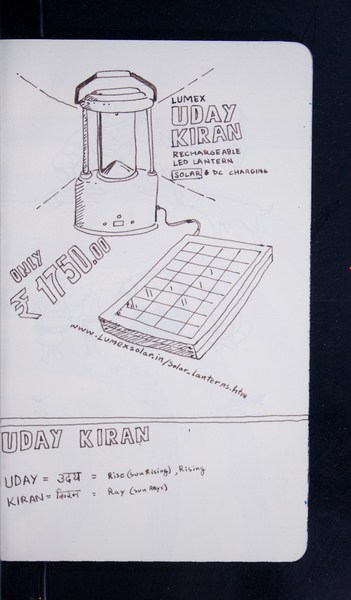 LUMEX
UDAY
KIRAN
RECHARGEABLE
LED LANTERN
SOLAR & DC CHARGING
ONLY
₹ 1750.00
www.Lumexsolar.in/Solar_Lanterns.htm
UDAY KIRAN
UDAY = उदय = Rise (sun Rising), Rising
KIRAN = किरण = Ray (sun rays)